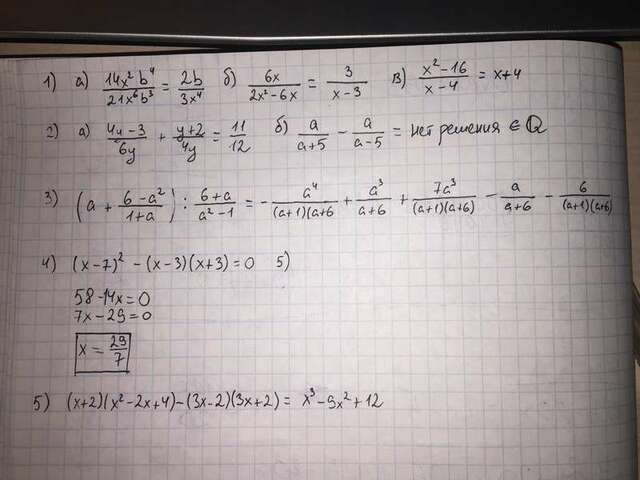 1) а) 14x²b⁴/21x⁶b³ = 2b/3x⁴ б) 6x/2x²-6x = 3/x-3 в) x²-16/x-4 = x+4
2) а) 4y-3/6y + y+2/4y = 11/12 б) a/a+5 - a/a-5 = нет решения ∈ Q
3) (a + 6-a²/1+a) : 6+a/a²-1 = - a⁴/(a+1)(a+6) + a³/a+6 + 7a³/(a+1)(a+6) - a/a+6 - 6/(a+1)(a+6)
4) (x-7)² - (x-3)(x+3) = 0 5)
58-14x=0
7x-29=0
x = 29/7
5) (x+2)(x²-2x+4)-(3x-2)(3x+2) = x³-9x²+12